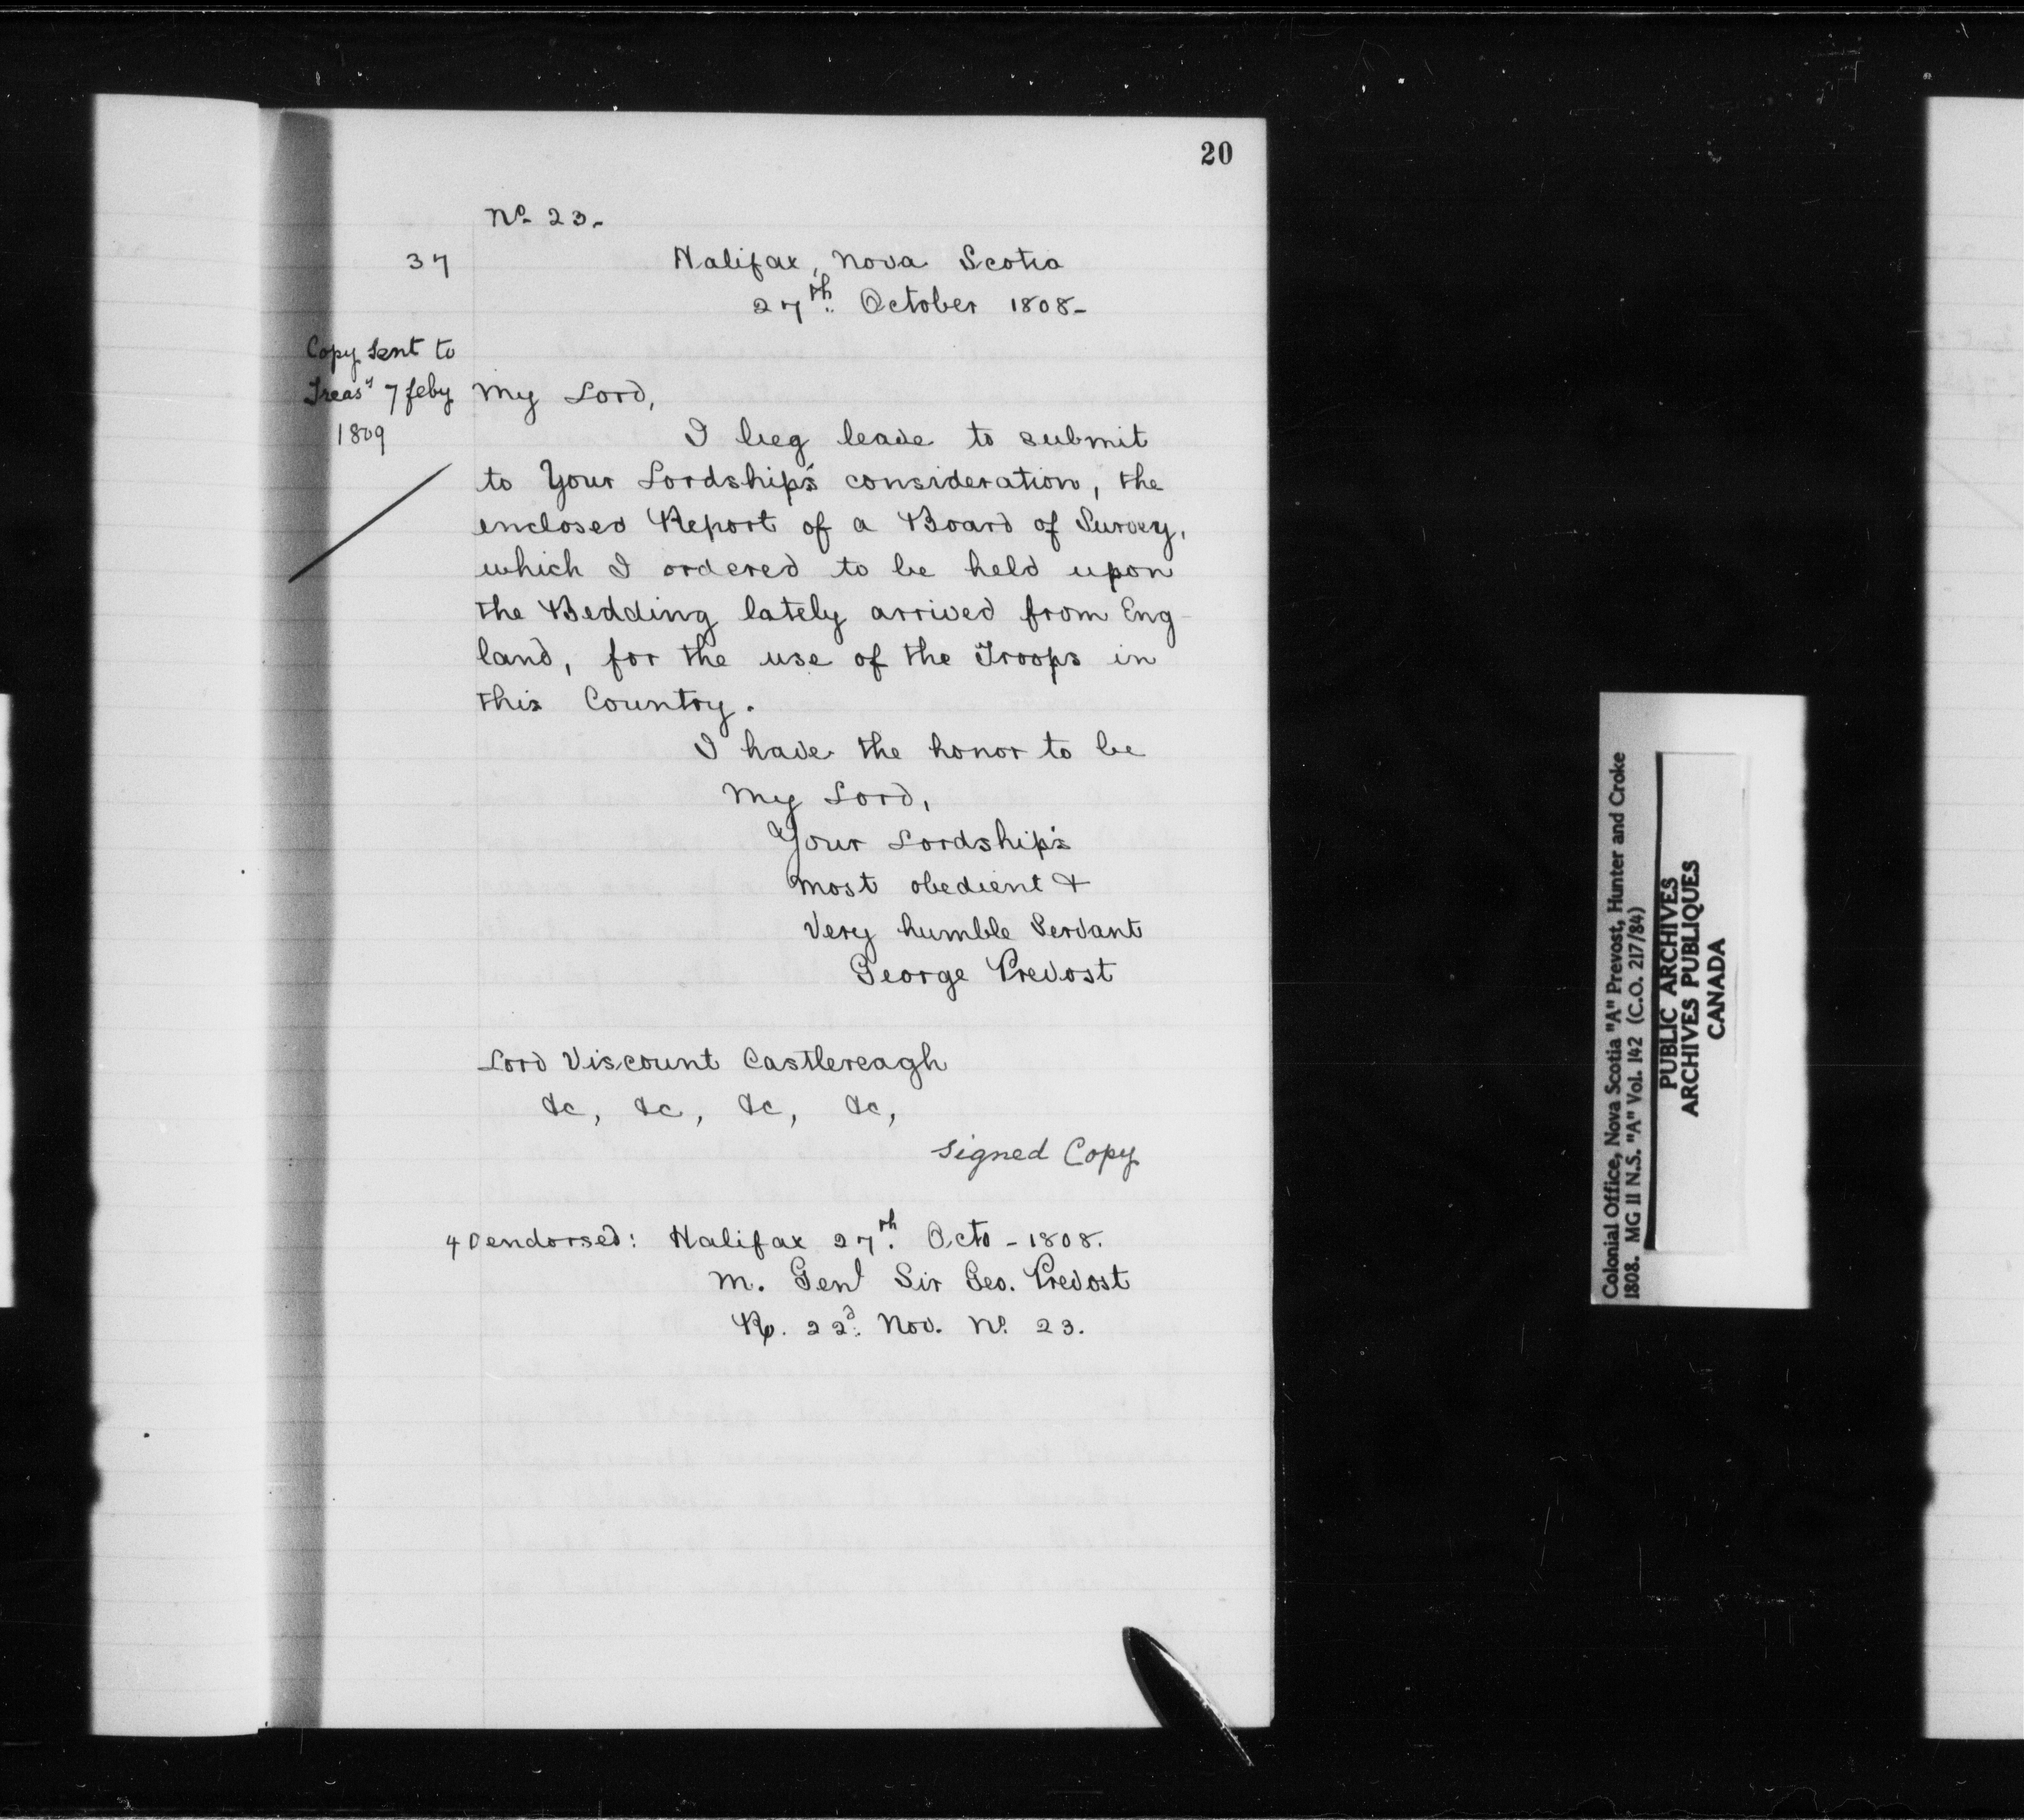 20
No. 23-
37
Halifax, Nova Scotia
27th. October 1808-
Copy sent to
Treasy 7 feby
1809
My Lord,
I beg leave to submit
to Your Lordship's consideration, the
enclosed Report of a Board of Survey,
which I ordered to be held upon
the Bedding lately arrived from Eng-
land, for the use of the Troops in
this Country.
I have the honor to be
My Lord,
Your Lordship's
most obedient &
Very humble Servant
George Prevost
Lord Viscount Castlereagh
&c, &c, &c, &c,
signed Copy
40 endorsed: Halifax 27th. Octo - 1808.
M. Genl Sir Geo. Prevost
R. 22d. Nov. No. 23.
Colonial Office, Nova Scotia "A" Prevost, Hunter and Croke
1808. MG 11 N.S. "A" Vol. 142 (C.O. 217/84)
PUBLIC ARCHIVES
ARCHIVES PUBLIQUES
CANADA